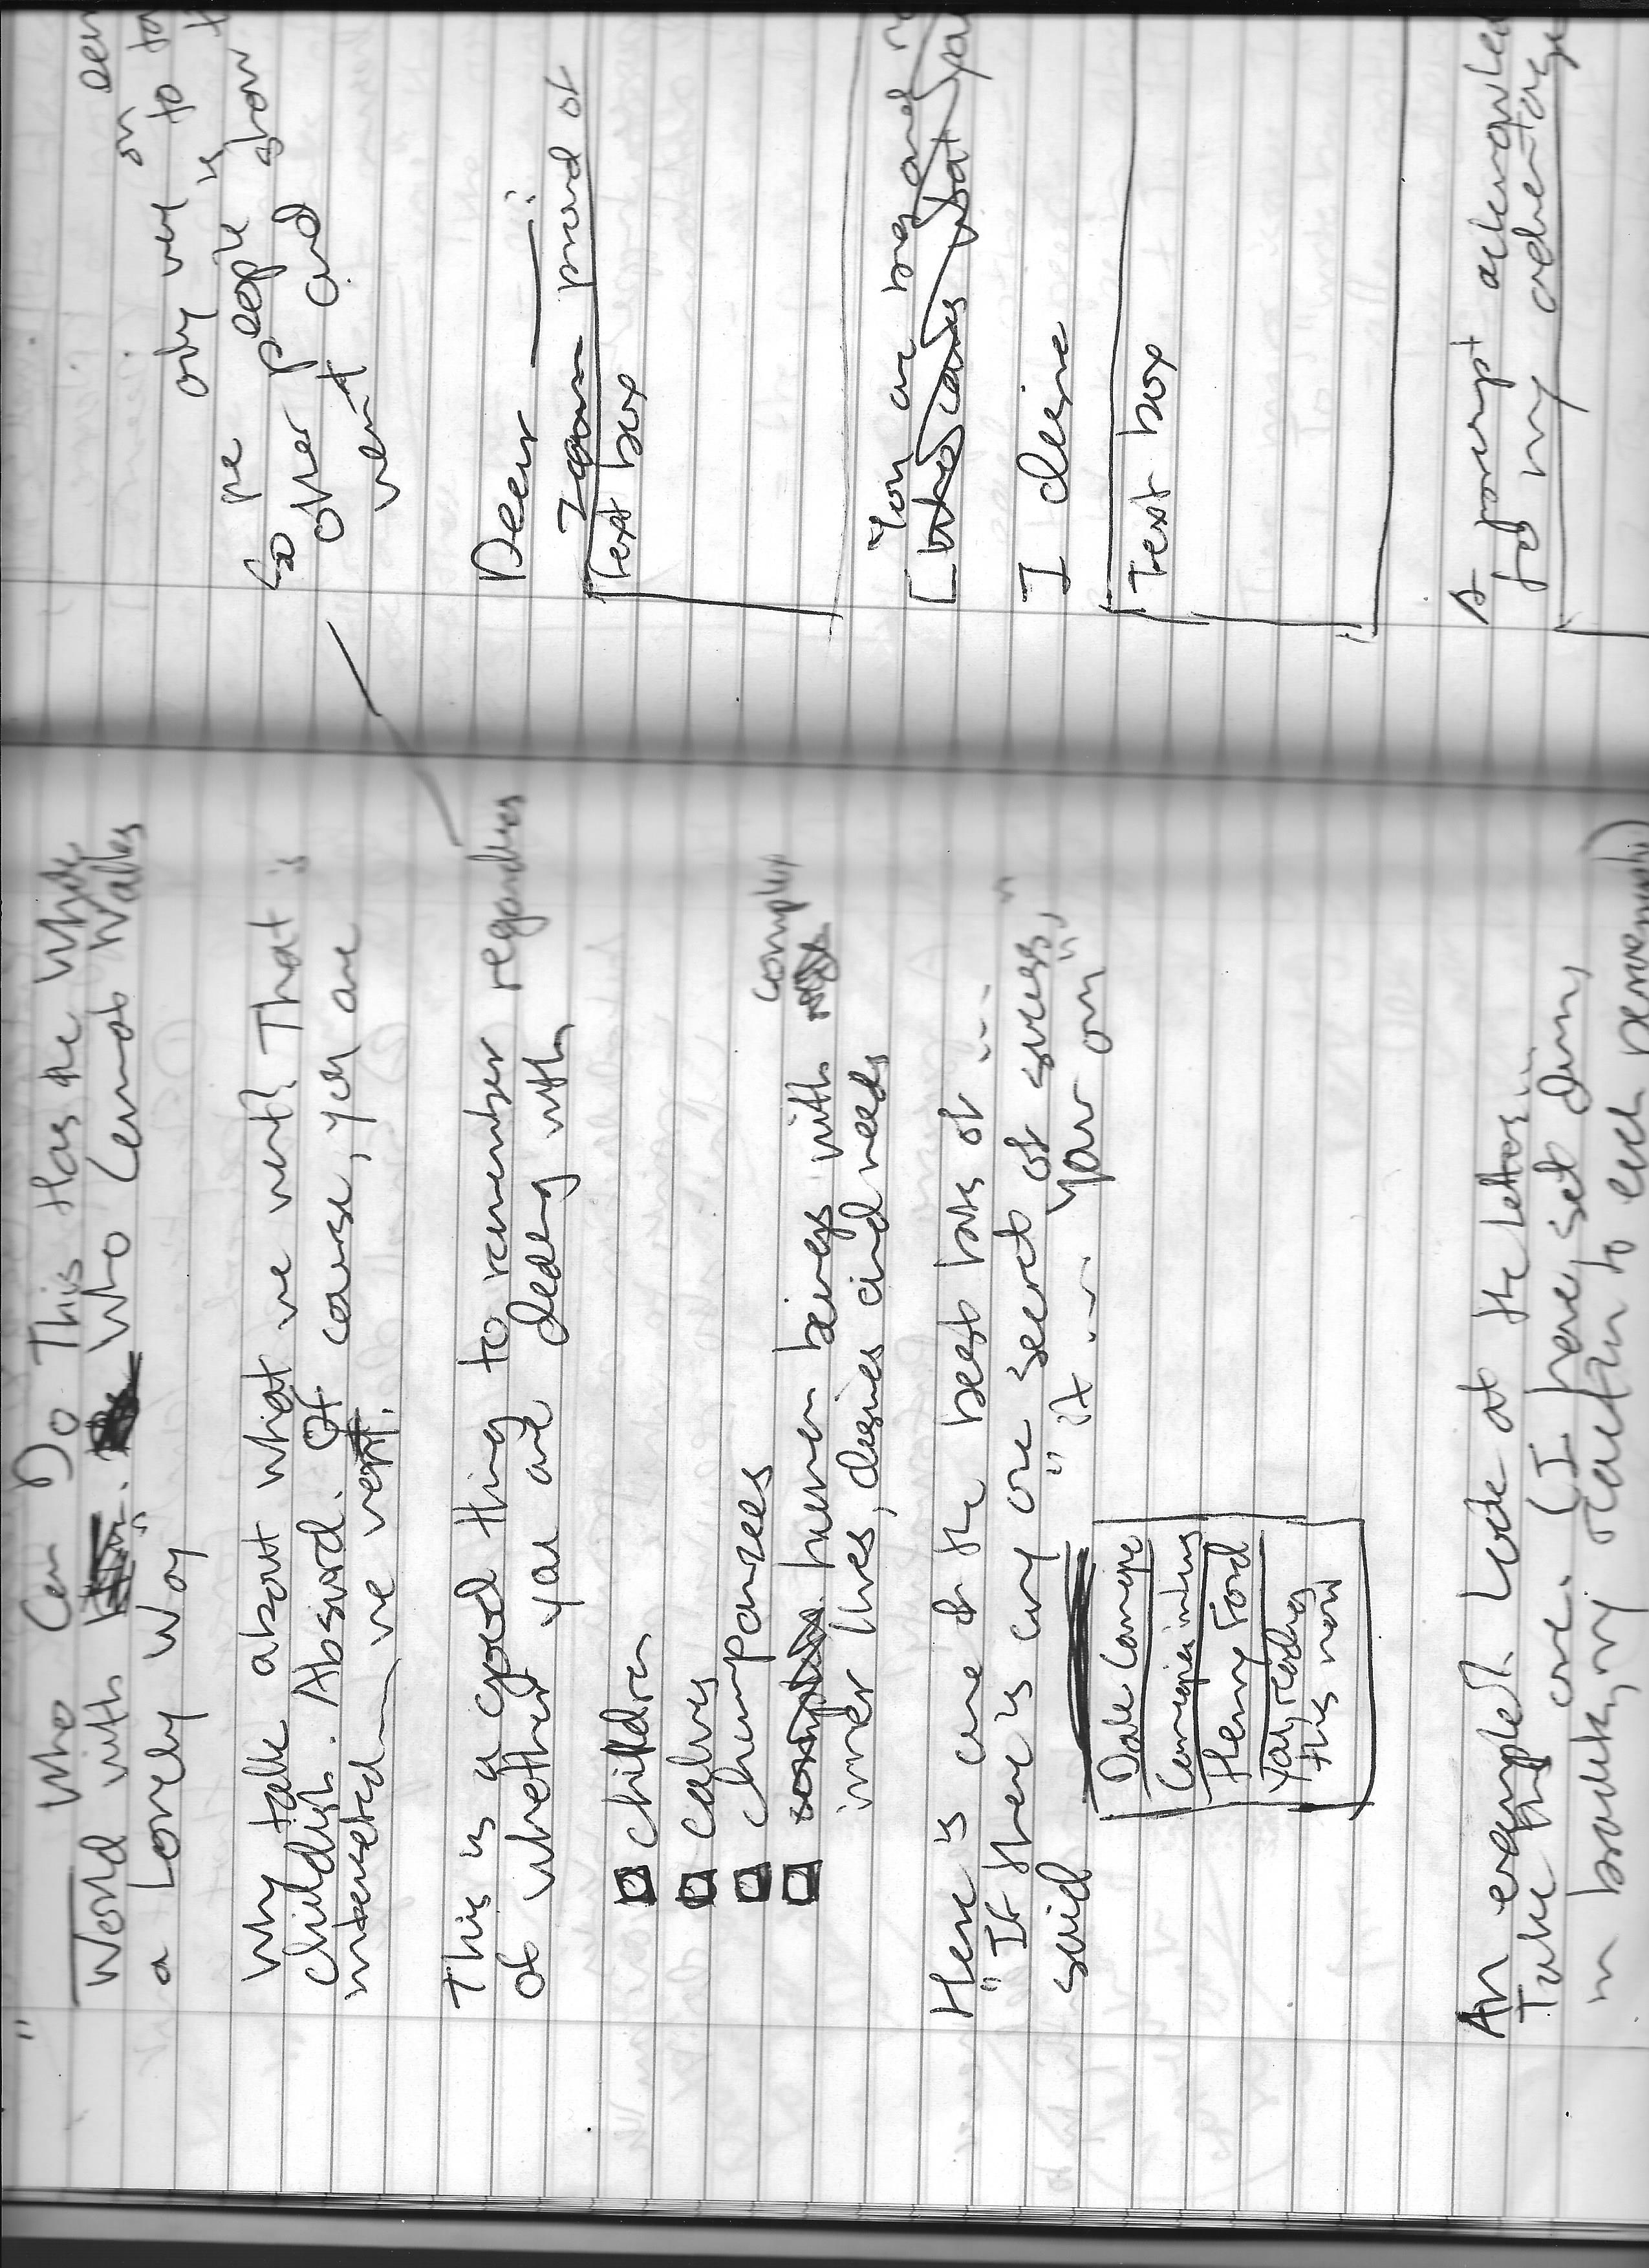 " Who Can Do This Has the Whole
World with him. Who Cannot Walks
a Lonely Way "
Why talk about what we want? That is
childish. Absurd. Of course, you are
interested in
we want.
This is a good thing to remember regardless
of whether you are dealing with
children
calves
chimpanzees
complex
human beings with
inner lives, desires and needs
Here is one of the best bits of ... "
"If there is any one secret of success,"
said " it ... your own "
Dale Carnegie
Henry Ford
You, reading
this now
An example? Look at the letters ...
Take one. (I have set down,
in brackets, my reaction to each
on
only way is to
people show
So
over and
want
Dear ___:
Text box
"You are
[who cares what
I desire
Text box
A prompt
for my advantage